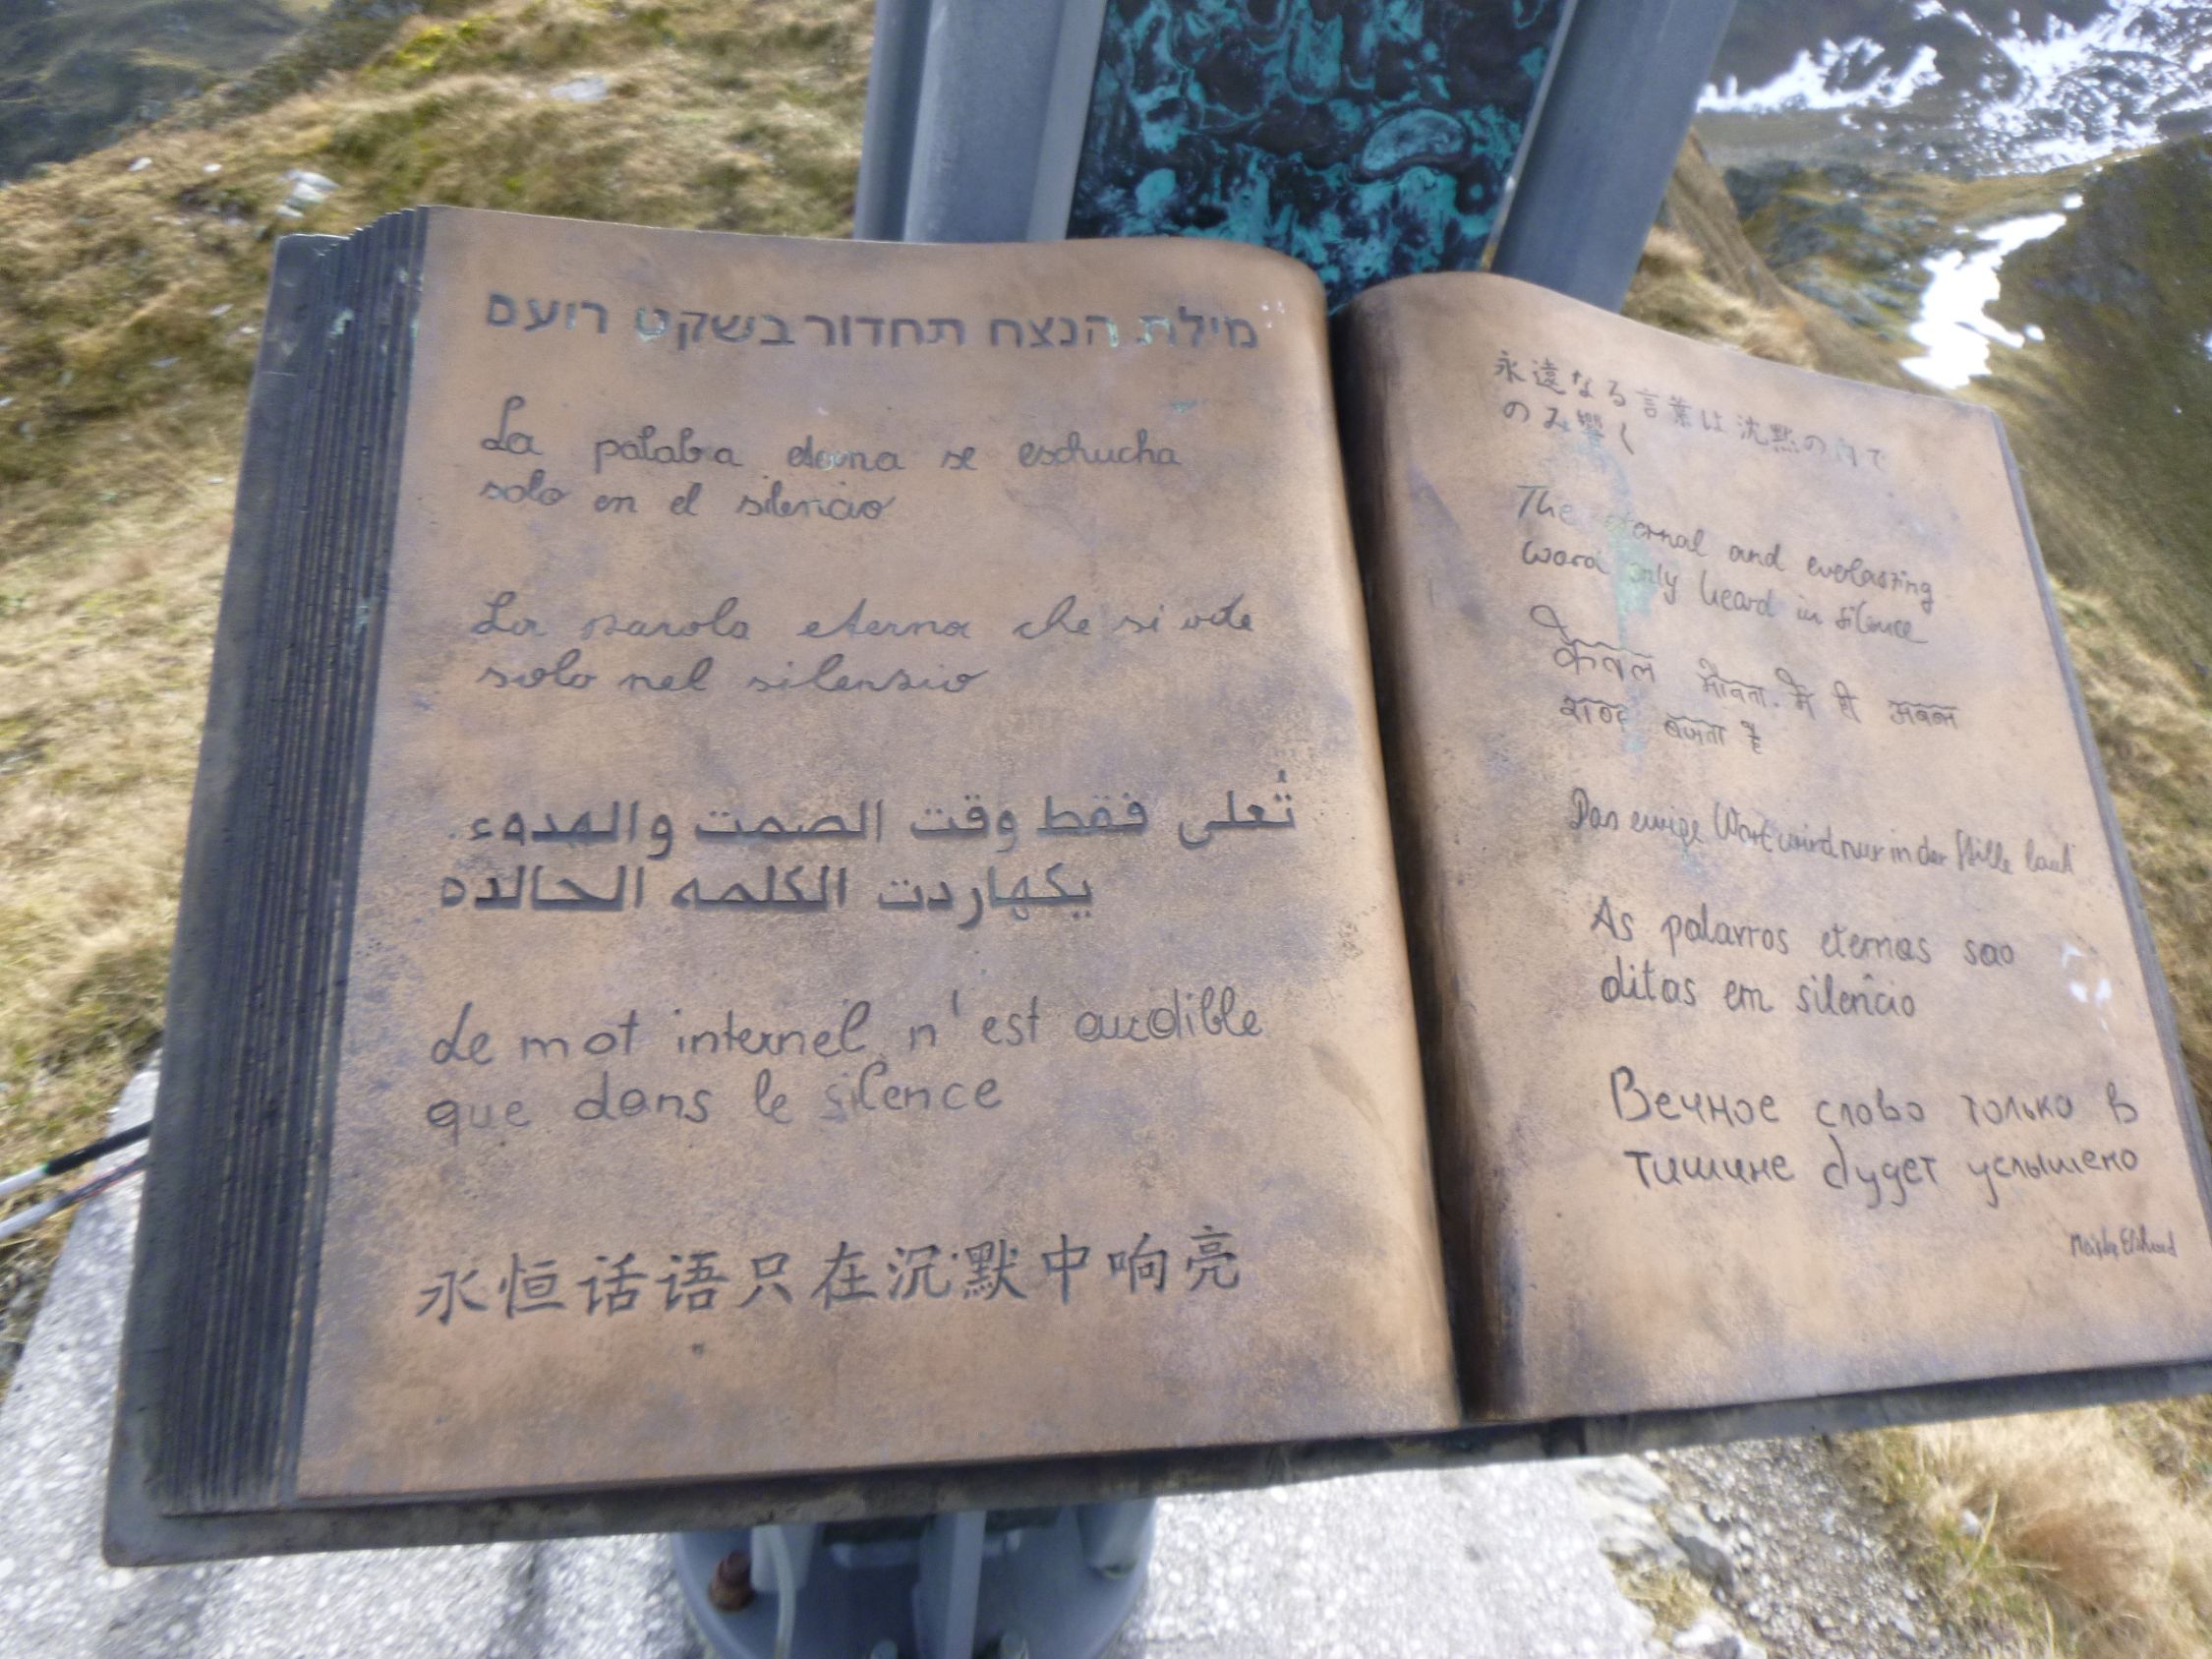 מילת הנצח תחדור בשקט רועם
La palabra eterna se eschucha
solo en el silencio
La parola eterna che si ode
solo nel silenzio
تُعلى فقط وقت الصمت والهدوء.
الكلمه الحالده
Le mot internel n'est audible
que dans le silence
永恒话语只在沉默中响亮
永遠なる言葉は沈黙の内で
のみ響く
The eternal and everlasting
word only heard in silence
केवल में ही
शब्द है
Das ewige Wort wird nur in der Stille laut
As palavros eternas sao
ditas em silencio
Вечное слово только в
тишине будет услышено